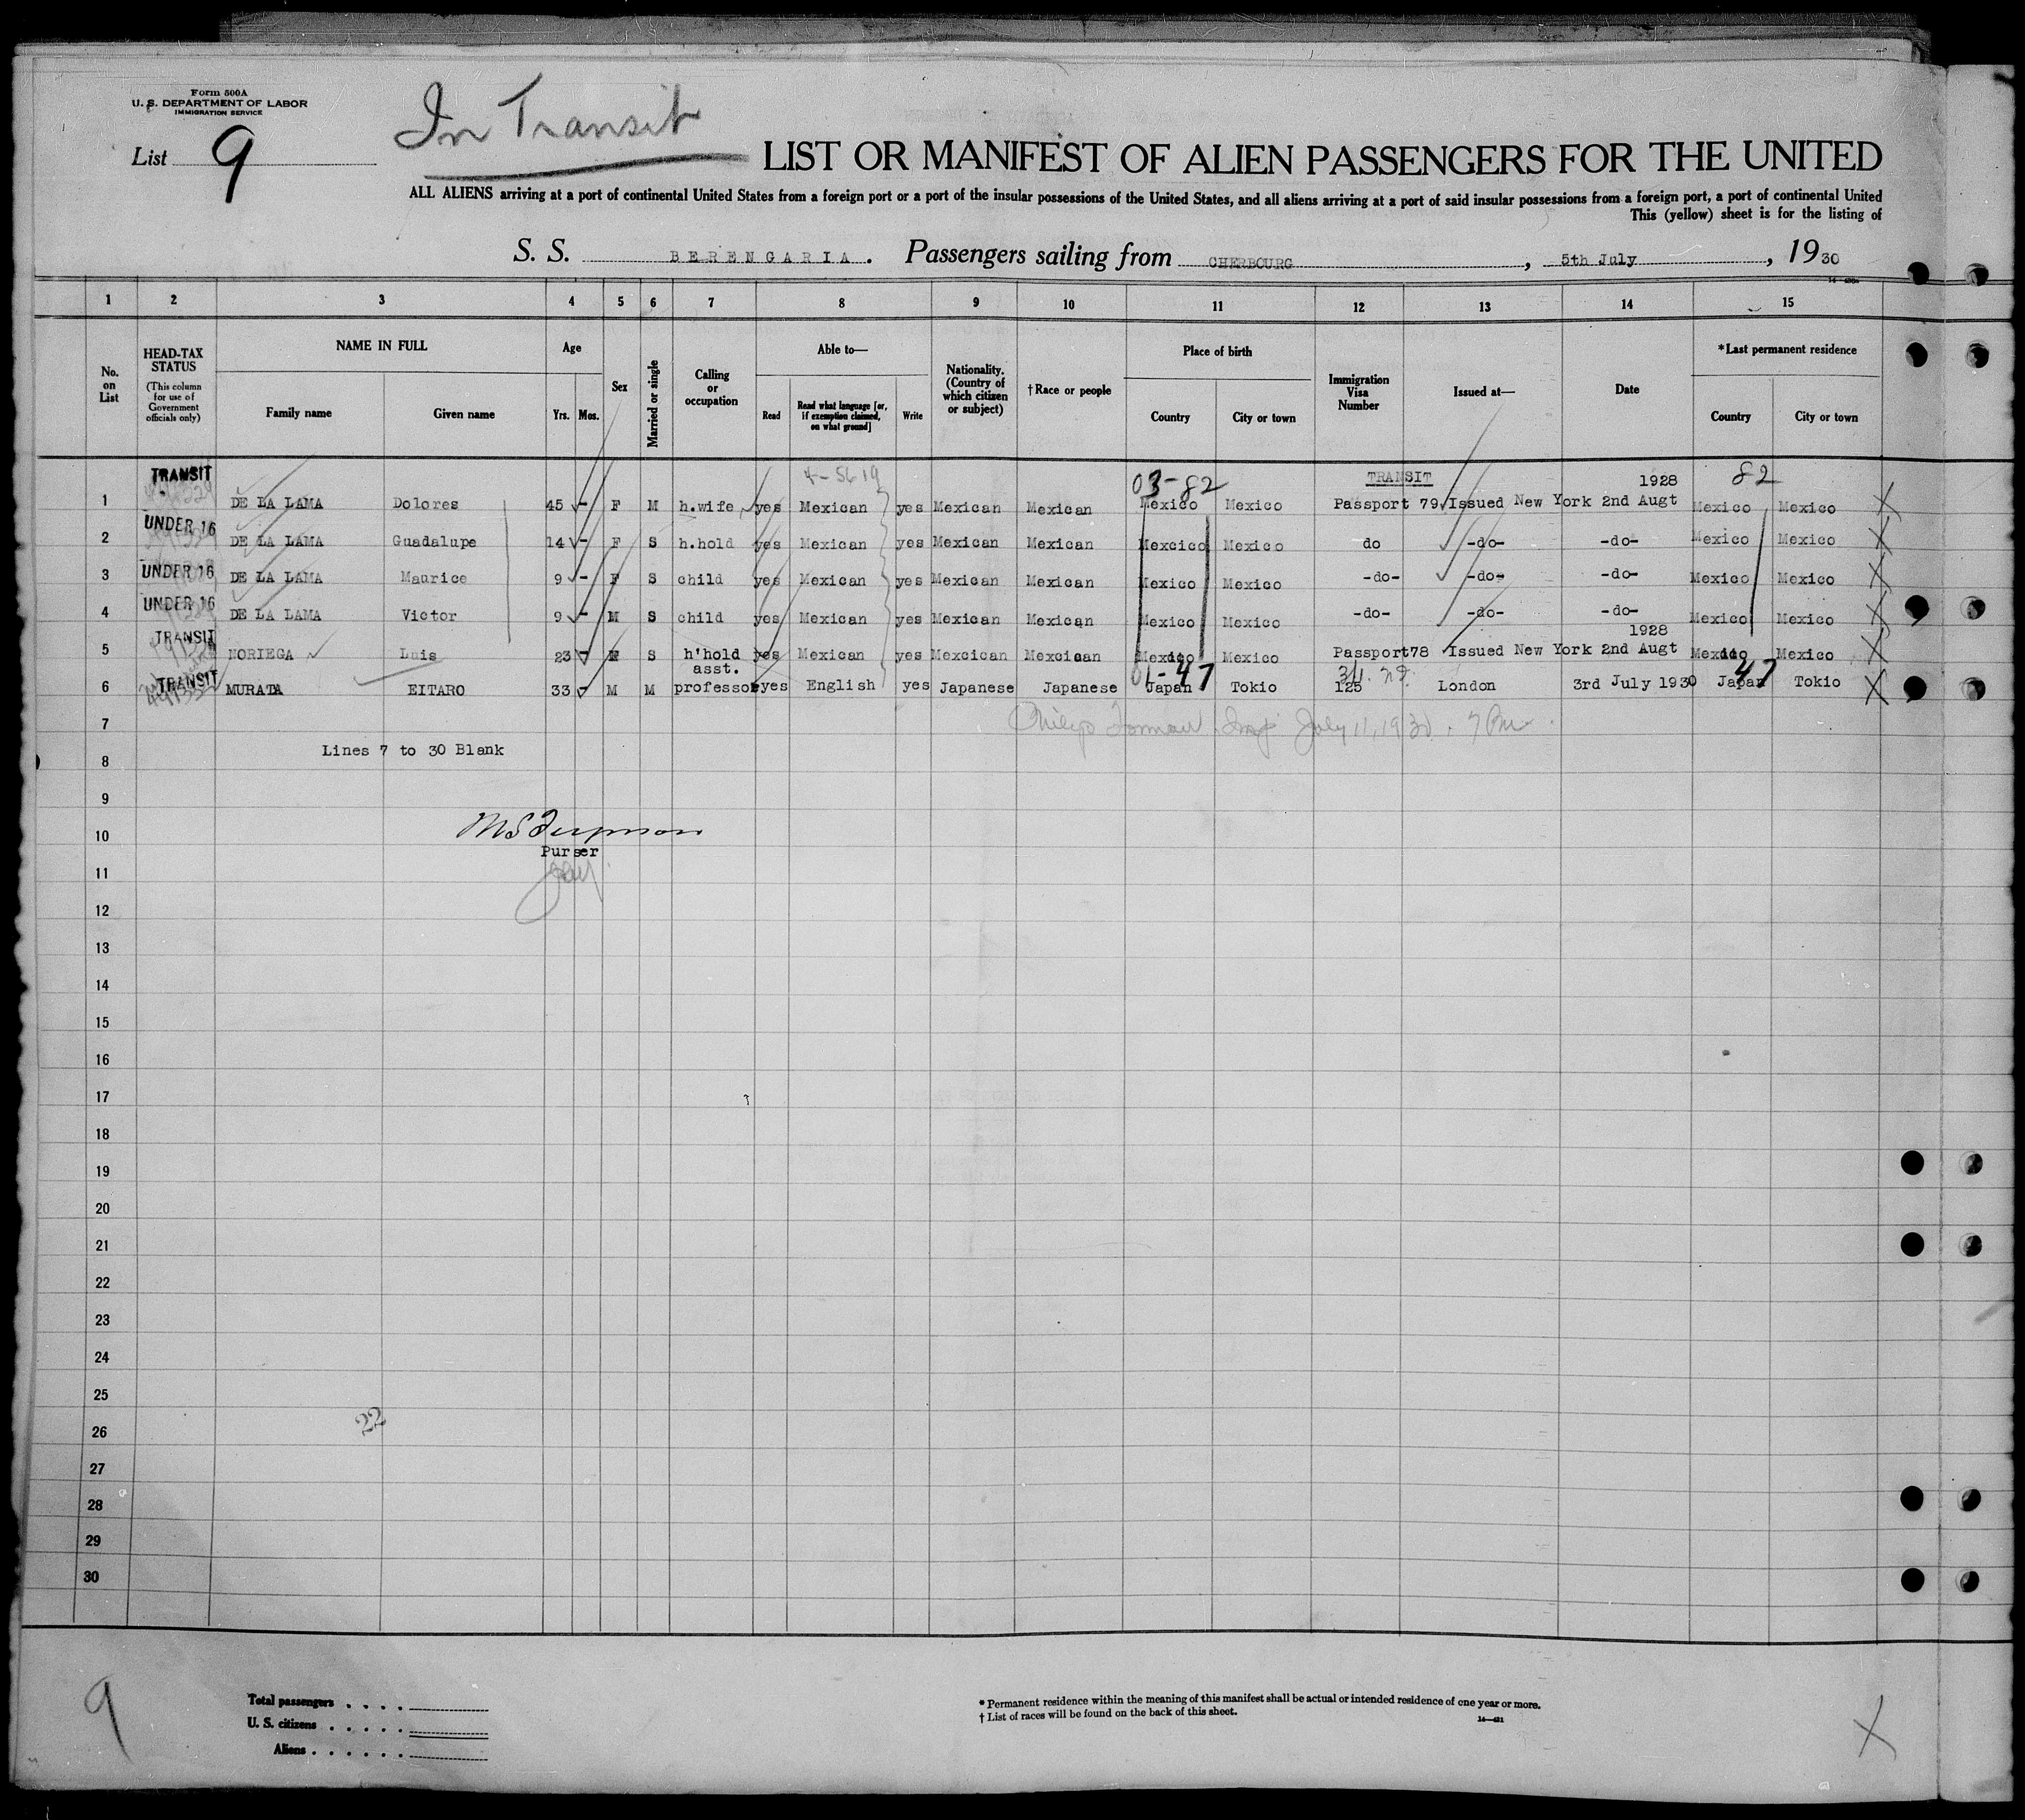 Form 500A
U. S. DEPARTMENT OF LABOR
IMMIGRATION SERVICE
List 9
In Transit
LIST OR MANIFEST OF ALIEN PASSENGERS FOR THE UNITED
ALL ALIENS arriving at a port of continental United States from a foreign port or a port of the insular possessions of the United States, and all aliens arriving at a port of said insular possessions from a foreign port, a port of continental United
This (yellow) sheet is for the listing of
S. S. BERENGARIA. Passengers sailing from CHERBOURG, 5th July, 1930
1 2 3 4 5 6 7 8 9 10 11 12 13 14 15
No. on List
HEAD-TAX STATUS (This column for use of Government officials only)
NAME IN FULL
Family name Given name
Age
Yrs. Mos.
Sex
Married or single
Calling or occupation
Able to—
Read Read what language [or, if exemption claimed, on what ground] Write
Nationality. (Country of which citizen or subject)
†Race or people
Place of birth
Country City or town
Immigration Visa Number
Issued at—
Date
*Last permanent residence
Country City or town
4-5619 03-82 TRANSIT 1928 82
1 TRANSIT DE LA LAMA Dolores 45 - F M h.wife yes Mexican yes Mexican Mexican Mexico Mexico Passport 79 Issued New York 2nd Augt Mexico Mexico X
2 UNDER 16 DE LA LAMA Guadalupe 14 - F S h.hold yes Mexican yes Mexican Mexican Mexcico Mexico do -do- -do- Mexico Mexico X
3 UNDER 16 DE LA LAMA Maurice 9 - F S child yes Mexican yes Mexican Mexican Mexico Mexico -do- -do- -do- Mexico Mexico X
4 UNDER 16 DE LA LAMA Victor 9 - M S child yes Mexican yes Mexican Mexican Mexico Mexico -do- -do- -do- Mexico Mexico X
1928
5 TRANSIT NORIEGA Luis 23 S h'hold yes Mexican yes Mexcican Mexcican Mexico Mexico Passport 78 Issued New York 2nd Augt Mexico Mexico X
asst. 01-47 47
6 TRANSIT MURATA EITARO 33 M M professor yes English yes Japanese Japanese Japan Tokio 125 London 3rd July 1930 Japan Tokio X
7 July 11, 1930. 7 Pm
Lines 7 to 30 Blank
8
9
10
Purser
11
12
13
14
15
16
17
18
19
20
21
22
23
24
25
22
26
27
28
29
30
9
Total passengers
U. S. citizens
Aliens
* Permanent residence within the meaning of this manifest shall be actual or intended residence of one year or more.
† List of races will be found on the back of this sheet.
14—421
X